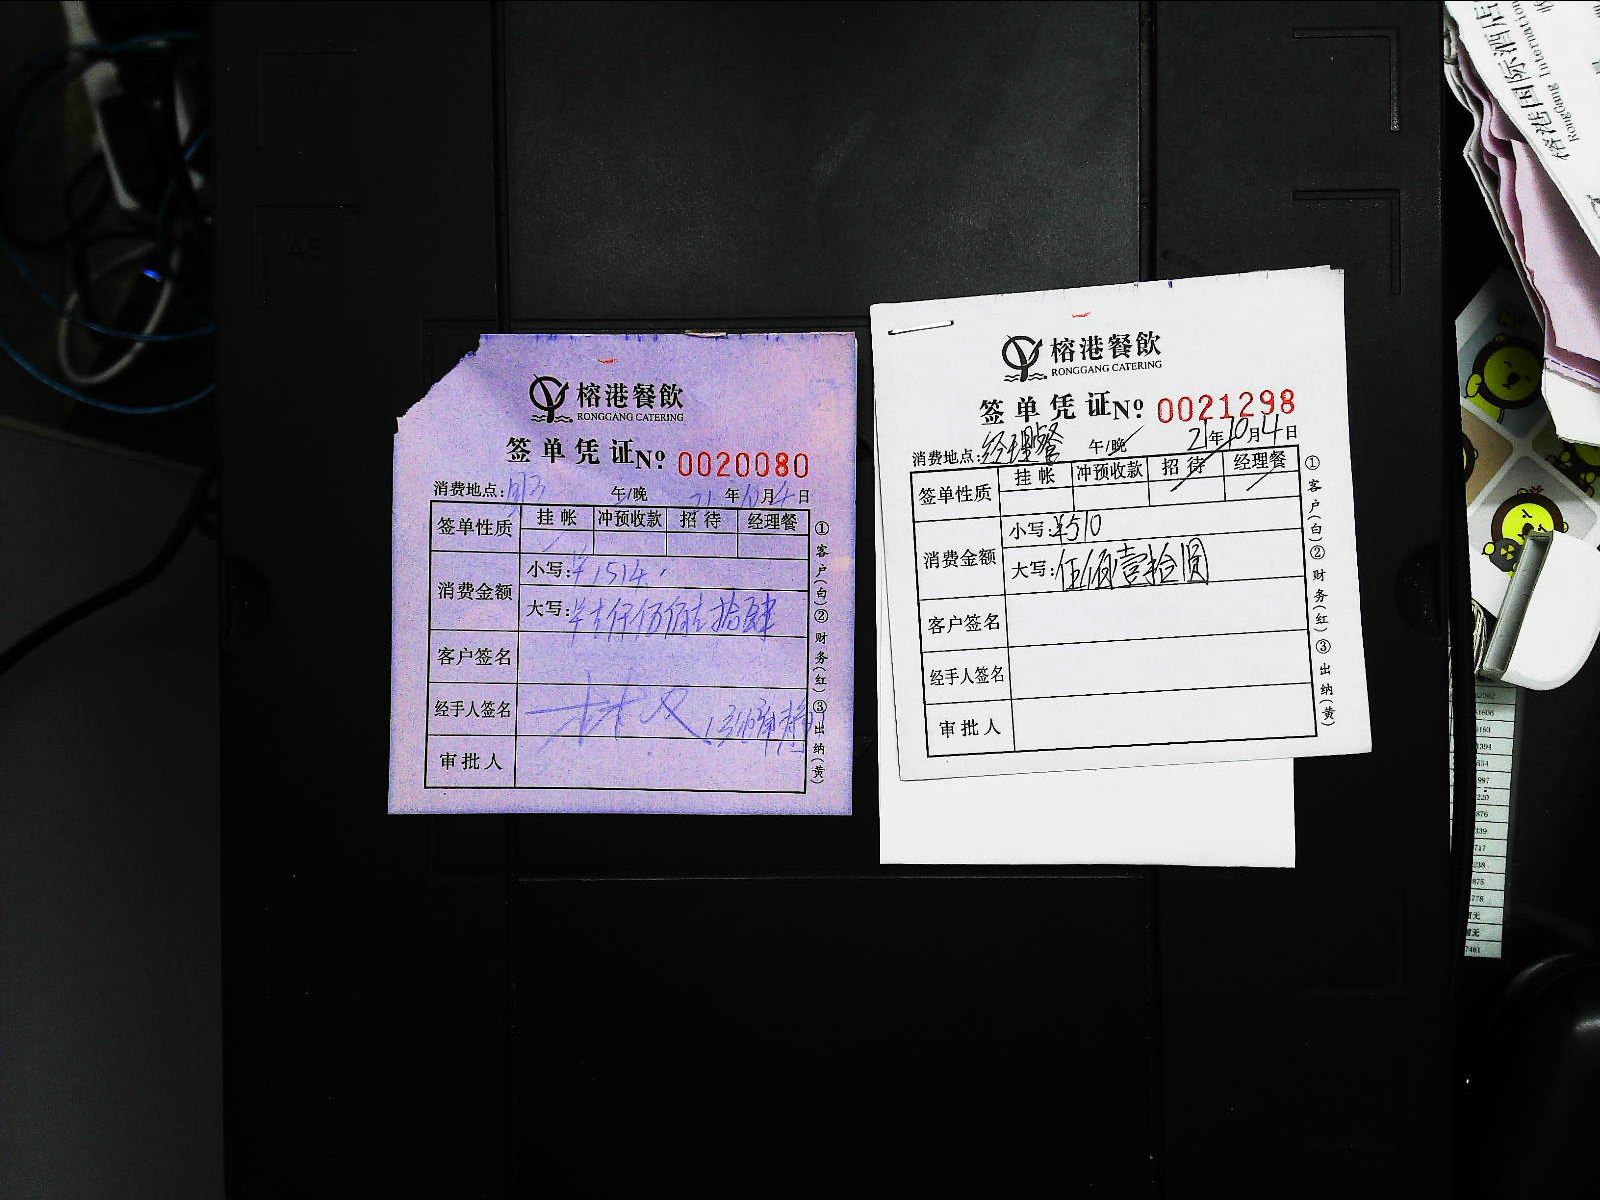 榕港餐飲
RONGGANG CATERING
签单凭证 Nº 0020080
消费地点: 午/晚 21年10月4日
签单性质 挂帐 冲预收款 招待 经理餐
消费金额
小写:¥1514.
大写:
客户签名
经手人签名
审批人
①客户(白)②财务(红)③出纳(黄)
榕港餐飲
RONGGANG CATERING
签单凭证 Nº 0021298
消费地点:经理餐 午/晚 21年10月4日
签单性质 挂帐 冲预收款 招待 经理餐
消费金额
小写:¥510
大写:伍佰壹拾圆
客户签名
经手人签名
审批人
①客户(白)②财务(红)③出纳(黄)
榕港国际酒店
RongGang Internation